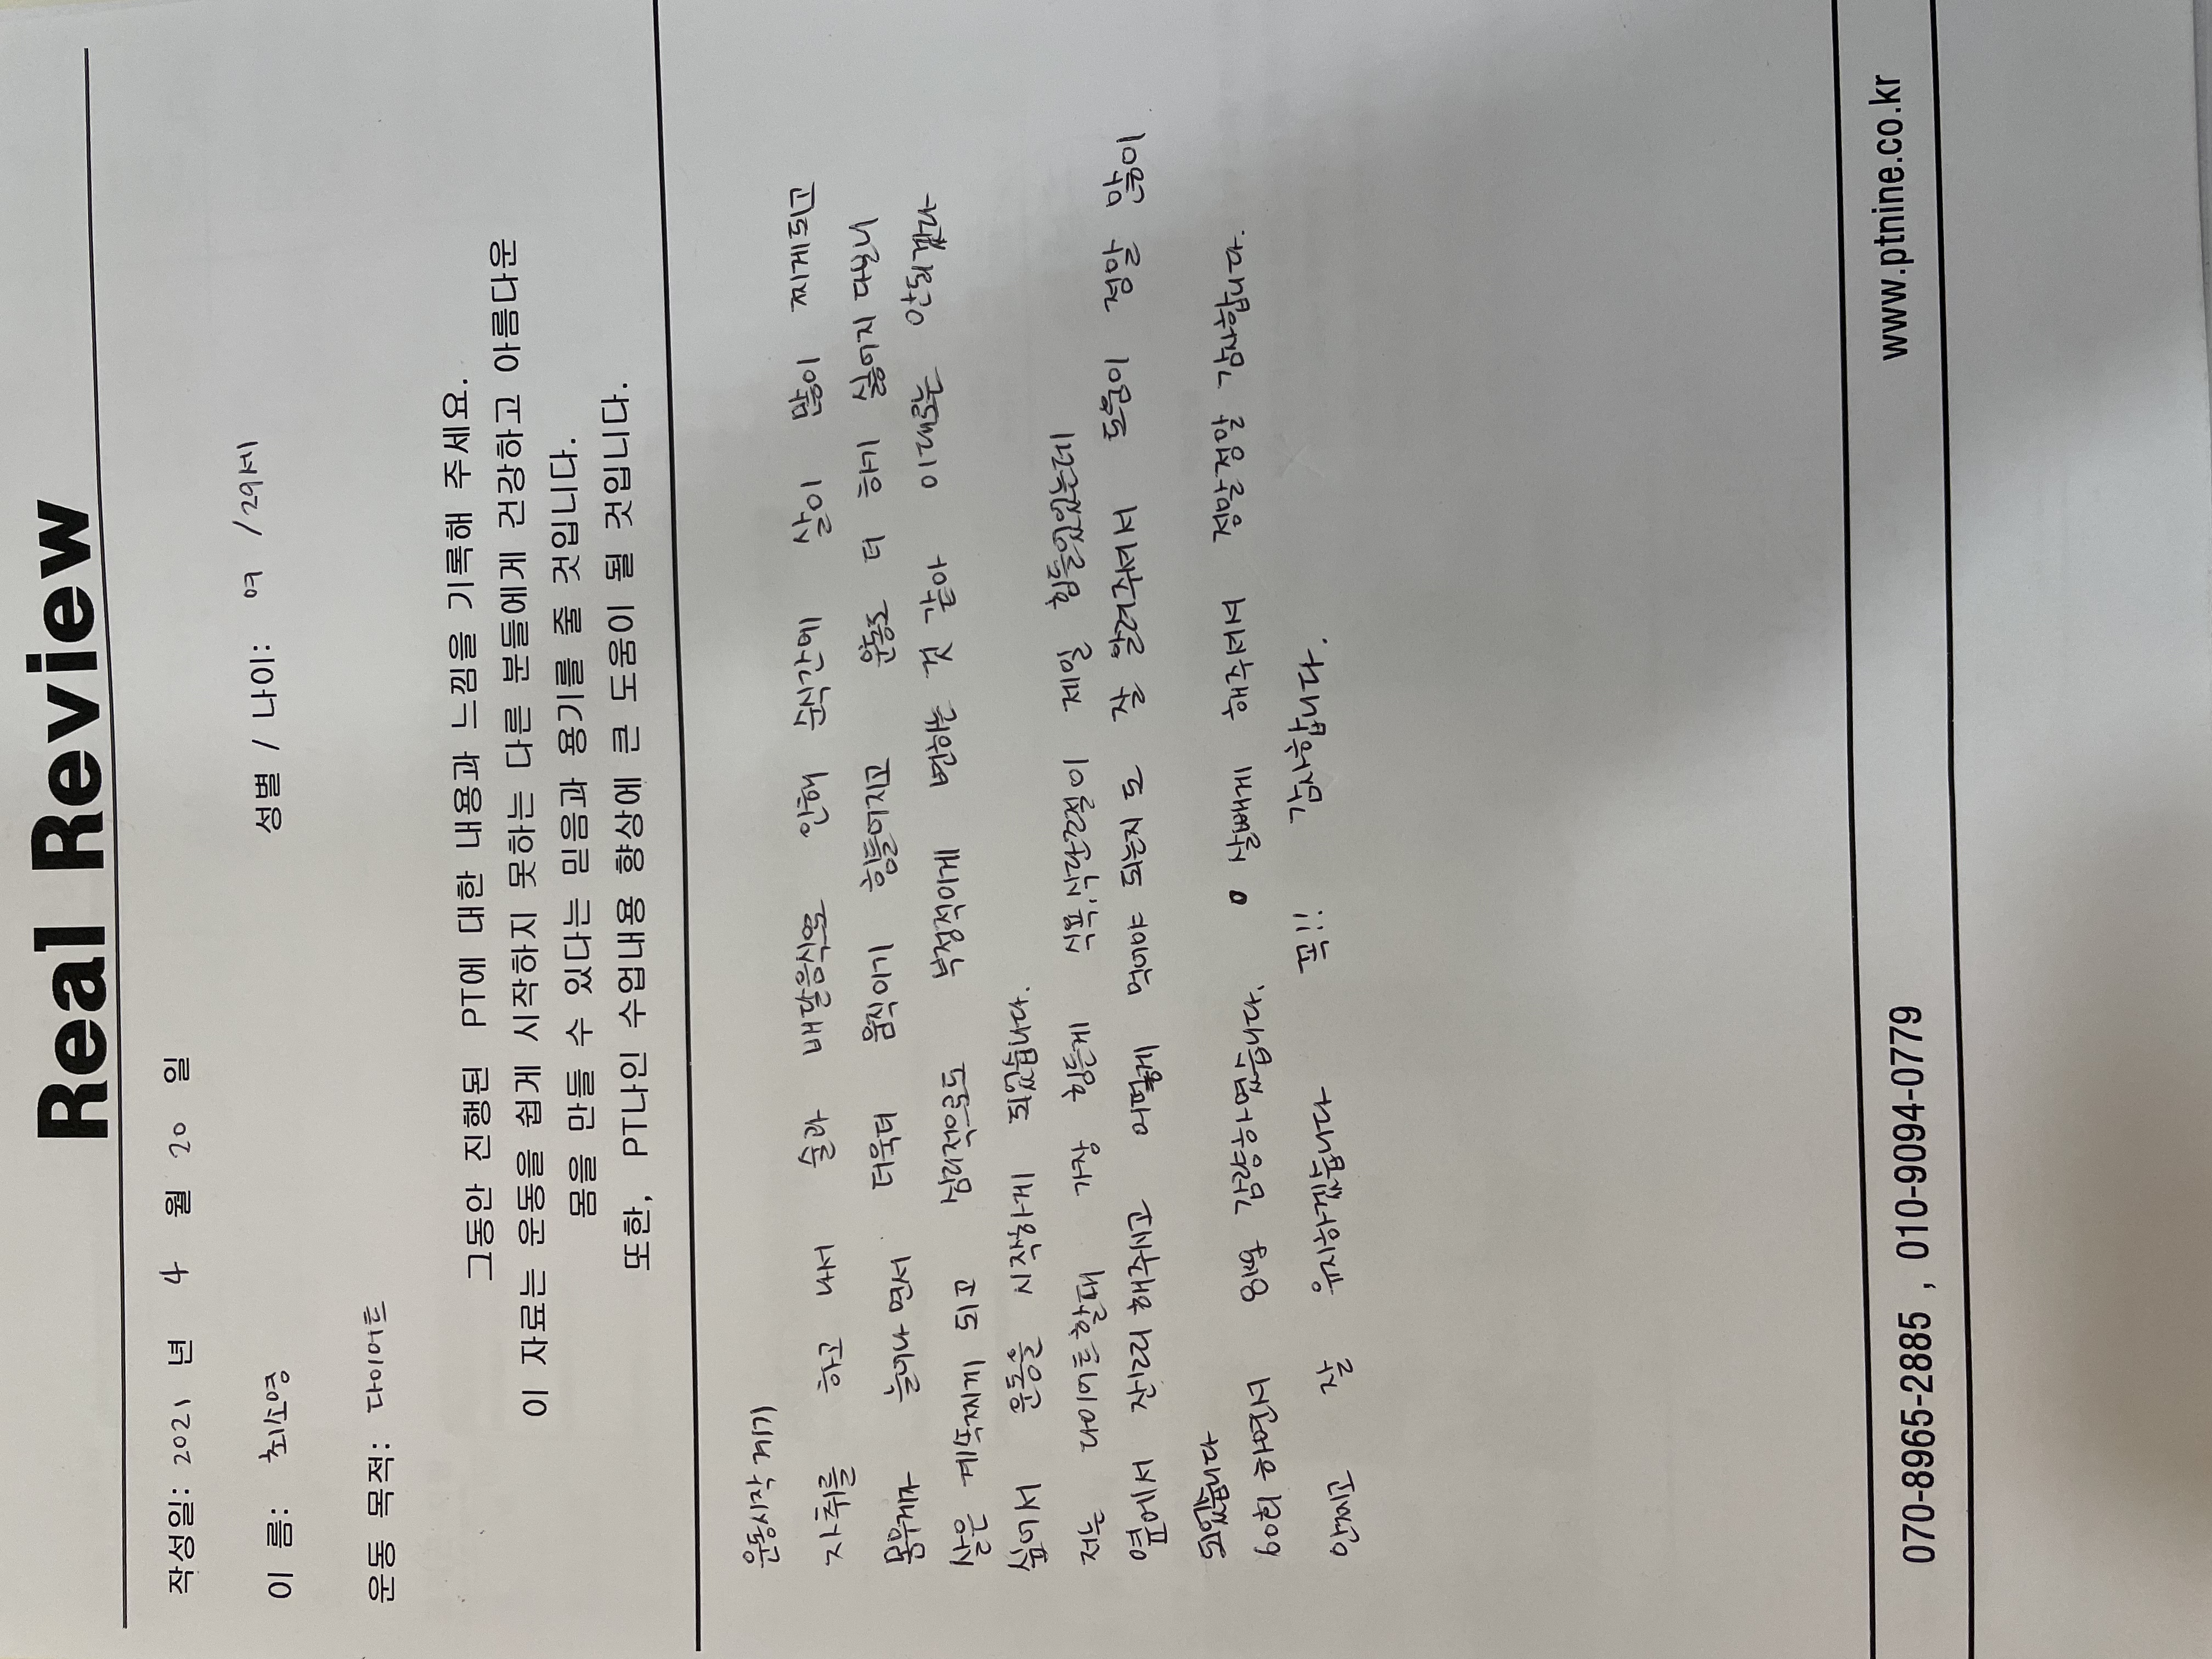 Real Review
작성일: 2021 년 4 월 20 일
이 름: 최소영 성별 / 나이: 여 / 29세
운동 목적: 다이어트
그동안 진행된 PT에 대한 내용과 느낌을 기록해 주세요.
이 자료는 운동을 쉽게 시작하지 못하는 다른 분들에게 건강하고 아름다운
몸을 만들 수 있다는 믿음과 용기를 줄 것입니다.
또한, PT나인 수업내용 향상에 큰 도움이 될 것입니다.
운동시작 계기
자취를 하고 나서 술과 배달음식으로 인해 순식간에 살이 많이 찌게되고
몸무게가 늘어나면서 더욱더 움직이기 힘들어지고 운동도 더 하기 싫어지다보니
살은 계속찌게 되고 심리적으로도 부정적이게 변하는 것 같아 이대로는 안되겠다
싶어서 운동을 시작하게 되었습니다.
저는 다이어트할때 가장 힘든게 식욕,식단조절이 제일 힘들었었는데
옆에서 관리해주시고 어떻게 먹어야 되는지도 잘 알려주셔서 도움이 정말 많이
되었습니다
60회 하면서 감량하였습니다. 살빼게 해주셔서 정말정말 감사합니다.
안찌고 잘 유지하겠습니다 꼭!! 감사합니다.
070-8965-2885 , 010-9094-0779 www.ptnine.co.kr